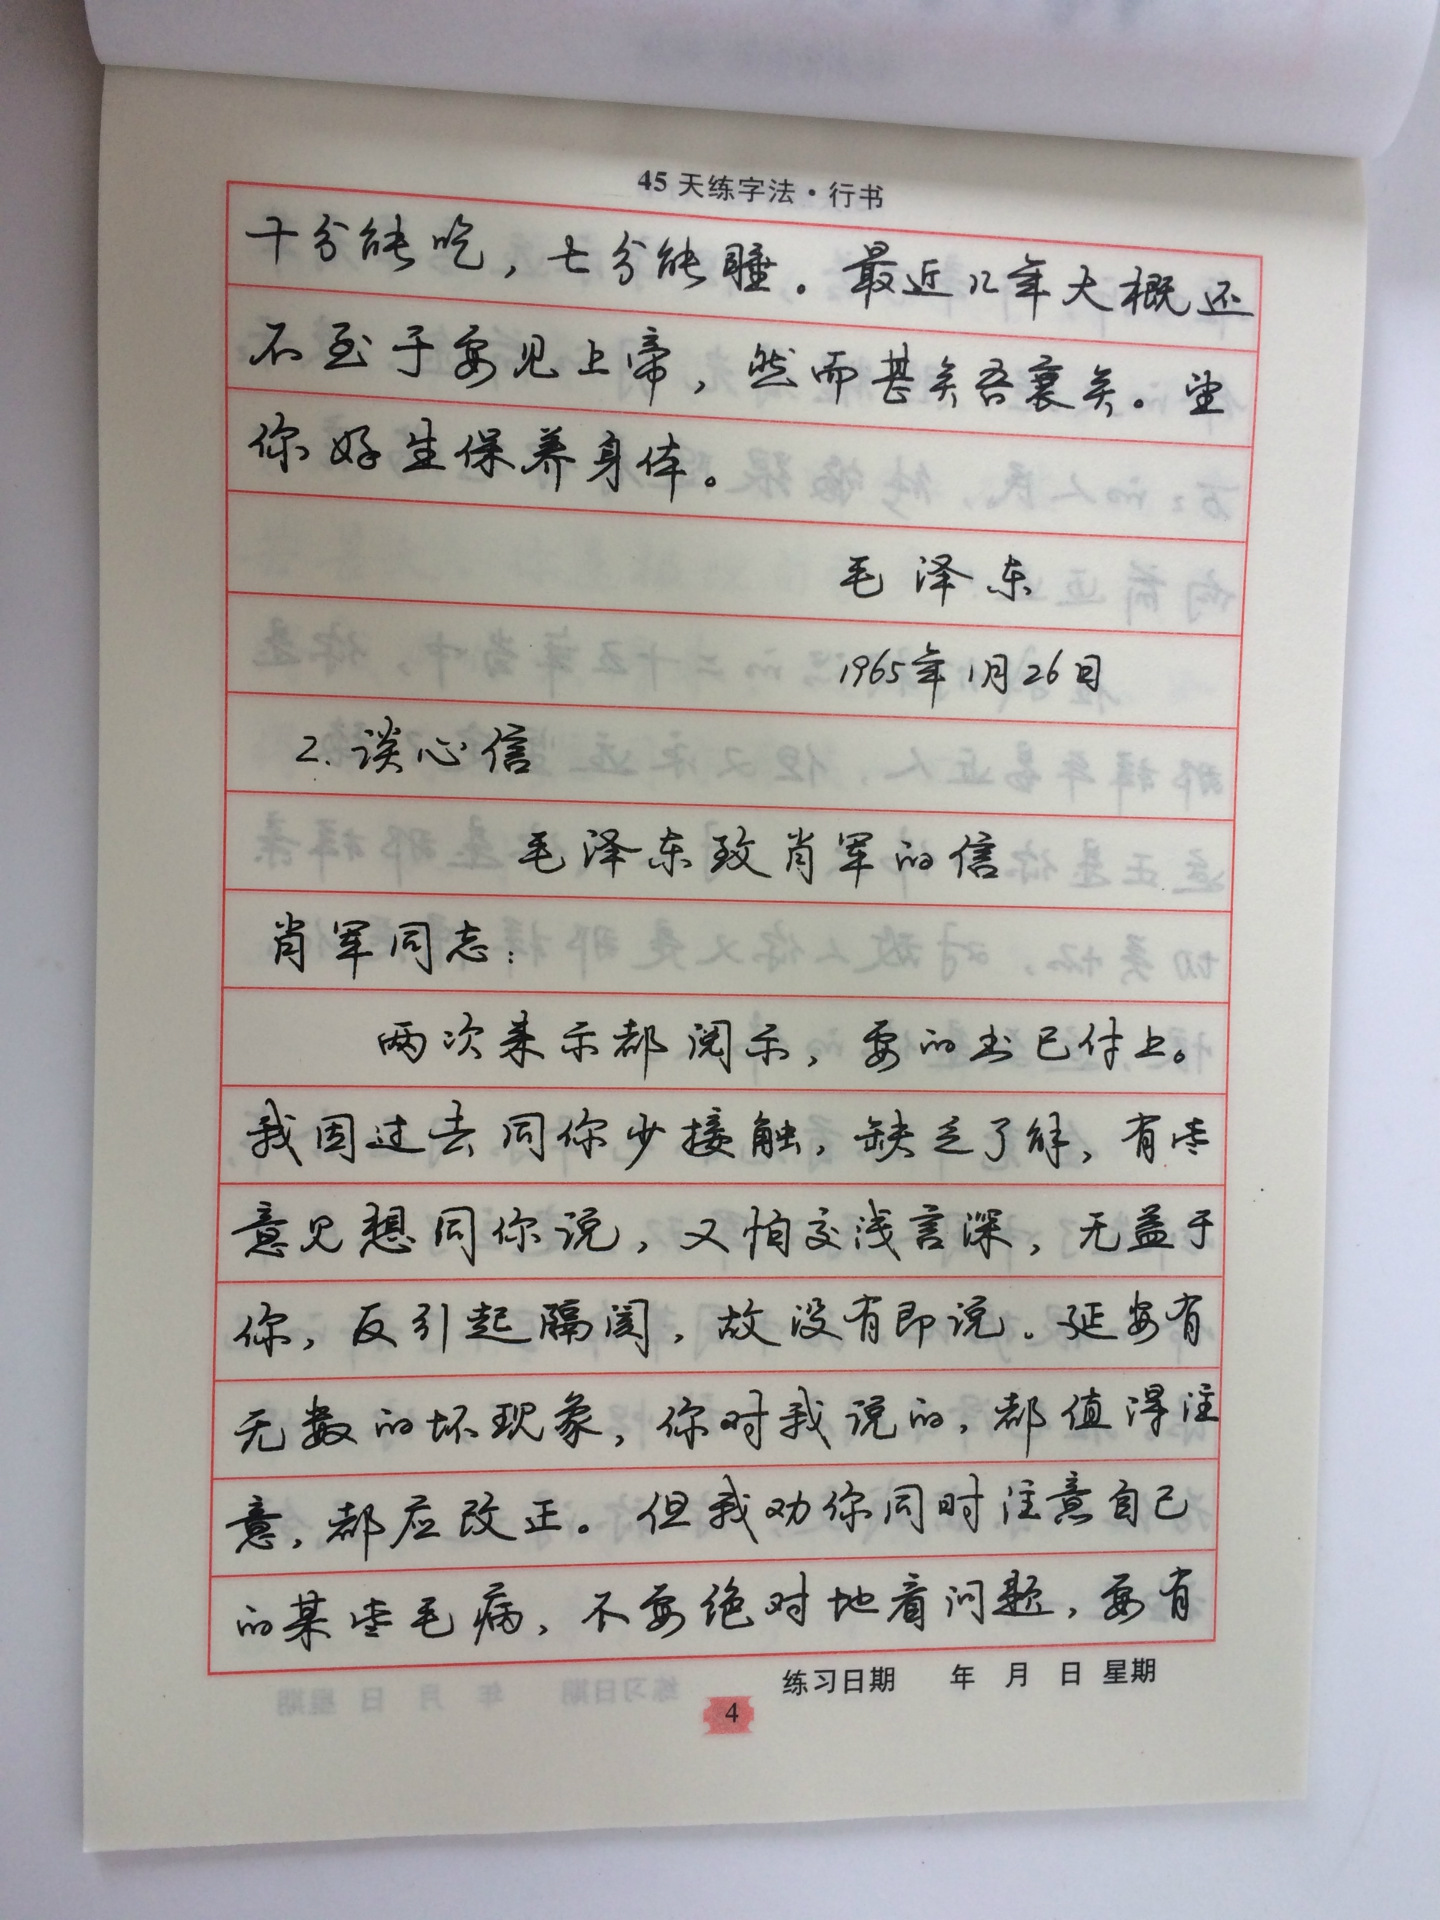 45天练字法·行书
十分能吃，七分能睡。最近几年大概还
不至于要见上帝，然而甚矣吾衰矣。望
你好生保养身体。
毛泽东
1965年1月26日
2.谈心信
毛泽东致肖军的信
肖军同志：
两次来示都阅示，要的书已付上。
我因过去同你少接触，缺乏了解，有些
意见想同你说，又怕交浅言深，无益于
你，反引起隔阂，故没有即说。延安有
无数的坏现象，你对我说的，都值得注
意，都应改正。但我劝你同时注意自己
的某些毛病，不要绝对地看问题，要有
练习日期 年 月 日 星期
4